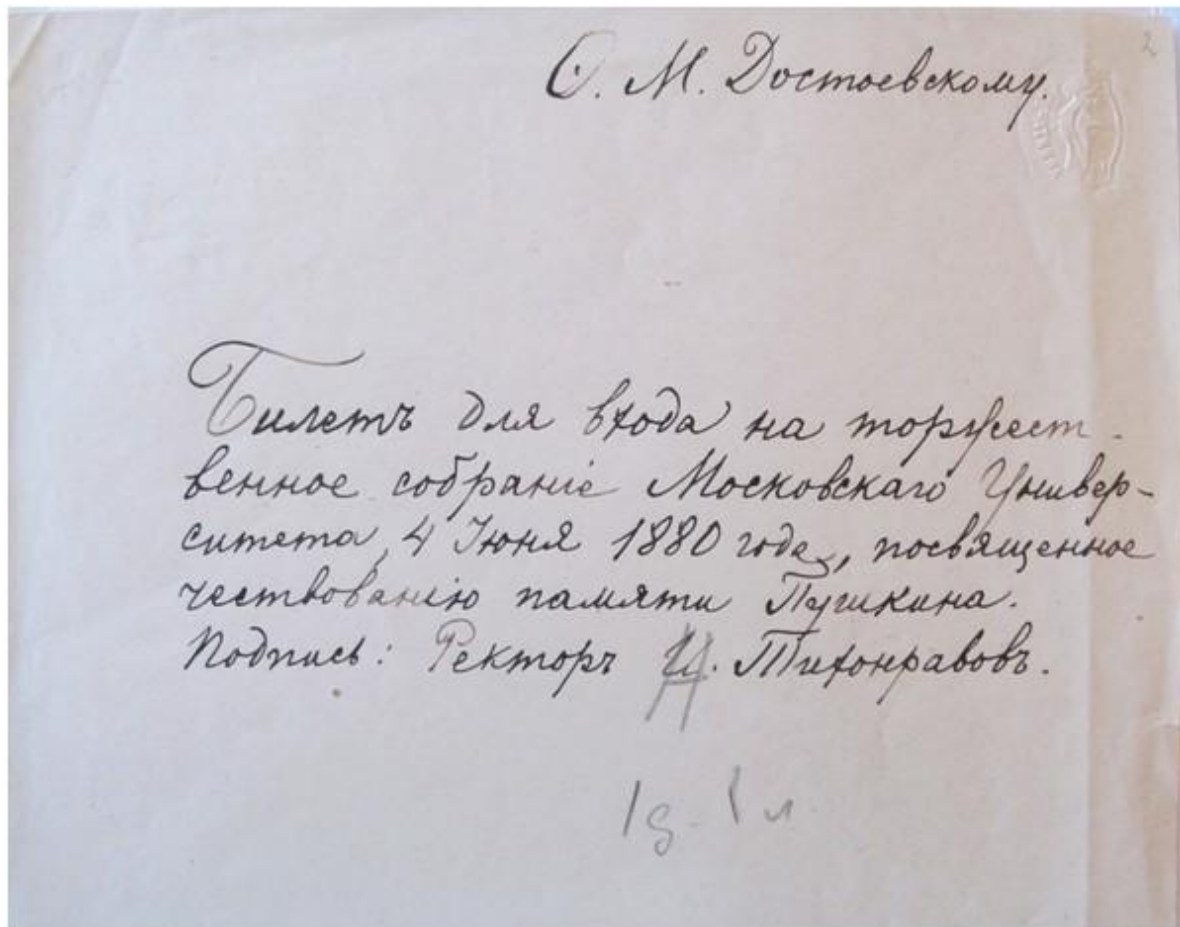 2
Ѳ. М. Достоевскому.
Билетъ для входа на торжест-
венное собраніе Московскаго Универ-
ситета, 4 Іюня 1880 года, посвященное
чествованію памяти Пушкина.
Подпись: Ректоръ Н. Тихонравовъ.
1 д. 1 л.